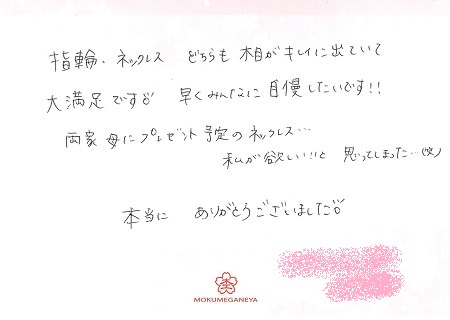 指輪・ネックレス どちらも木目がキレイに出ていて
大満足です♂ 早くみんなに自慢したいです!!
両家 母にプレゼント予定のネックレス…
私が欲しい!!と 思ってしまった…(笑)
本当に ありがとうございました♂
MOKUMEGANEYA